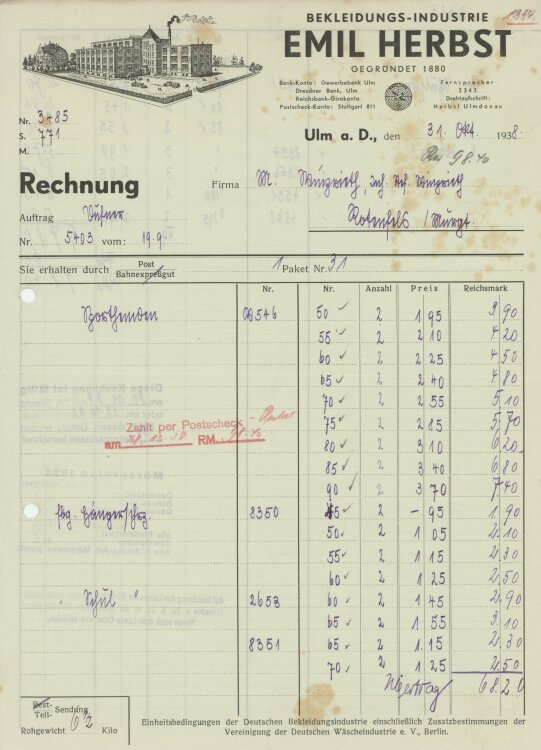 BEKLEIDUNGS-INDUSTRIE
EMIL HERBST
GEGRÜNDET 1880
Bank-Konto: Gewerbebank Ulm
Dresdner Bank, Ulm
Reichsbank-Girokonto
Postscheck-Konto: Stuttgart 811
Fernsprecher
2343
Drahtanschrift:
Herbst Ulmdonau
Nr. 3485
S. 771
M.
Ulm a. D., den 31. Okt. 1938.
98.40
Rechnung
Firma M.
Auftrag
Rotenfels / Murgt.
Nr. 5403 vom: 19.9.
Sie erhalten durch Post Bahnexpreßgut 1 Paket Nr. 31
Nr. Nr. Anzahl Preis Reichsmark
Sporthemden 546 50 2 1 95 3.90
55 2 2 10 4 20
60 2 2 25 4 50
65 2 2 40 4 80
70 2 2 55 5 10
75 2 2 85 5 70
80 2 3 10 6 20
85 2 3 40 6 80
90 2 3 70 7 40
Zahlt per Postscheck
am RM.
8350 45 2 -. 95 1 90
50 2 1 05 2.10
55 2 1 15 2.30
60 2 1 25 2.50
" Schul " 2653 60 2 1 45 2.90
65 2 1 55 3.10
8351 65 2 1.15 2.30
70 2 1 25 2.50
Übertrag 68.20
Rest-
Teil- Sendung
Rohgewicht 6½ Kilo
Einheitsbedingungen der Deutschen Bekleidungsindustrie einschließlich Zusatzbestimmungen der
Vereinigung der Deutschen Wäscheindustrie e. V., Berlin.